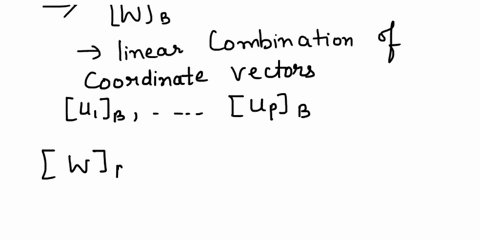 ⇒ [W]B
→ linear Combination of
Coordinate vectors
[u1]B, ---- [up]B
[W]